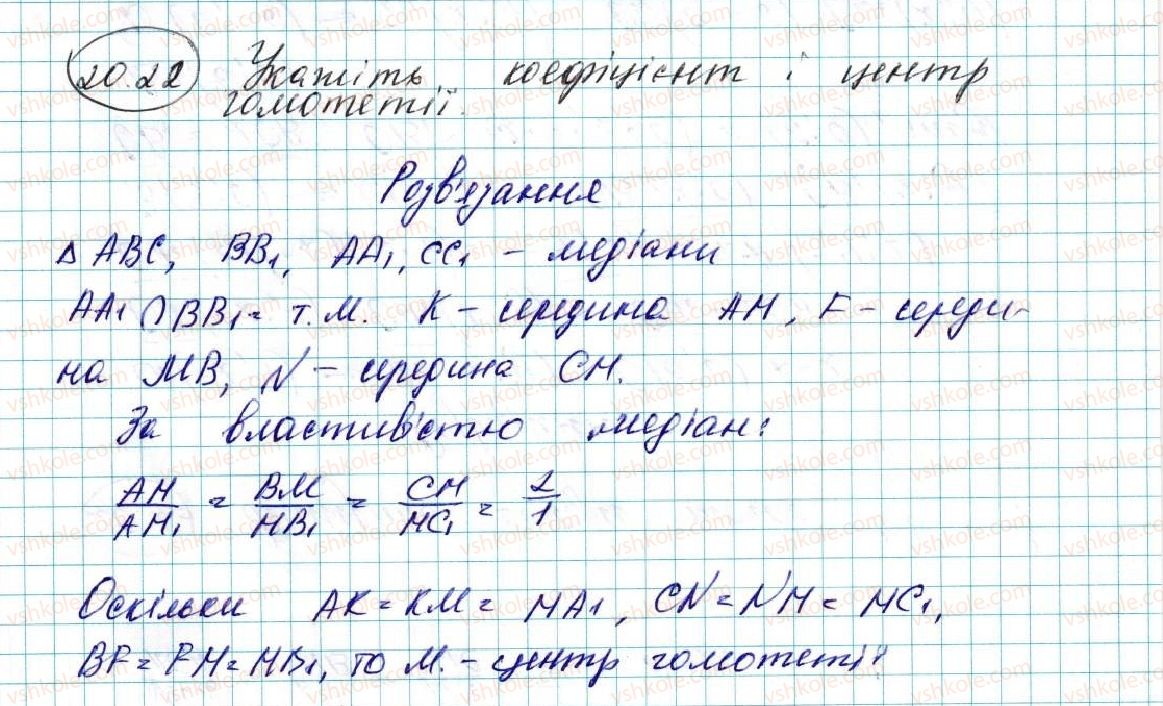 20.22 Укажіть коефіцієнт і центр
гомотетії.
Розв'язання
Δ ABC, BB₁, AA₁, CC₁ - медіани
AA₁ ∩ BB₁ = т. M. K - середина AM, F - середи-
на MB, N - середина CM.
За властивістю медіан:
AM/AM₁ = BM/MB₁ = CM/MC₁ = 2/1
Оскільки AK = KM = MA₁, CN = NM = MC₁,
BF = FM = MB₁, то M. - центр гомотетії